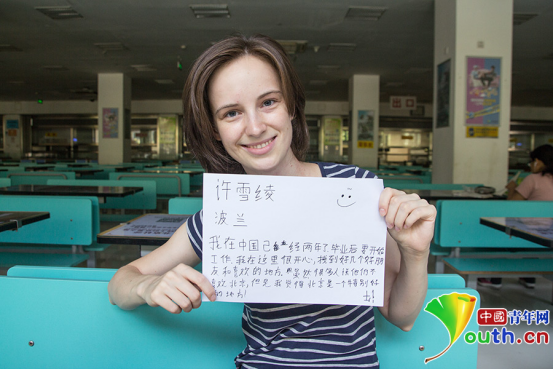 许雪绫
波兰
我在中国已经两年了毕业后要开始
工作。我在这里很开心,找到好几个好朋
友和喜欢的地方。虽然很多人说他们不
喜欢北京,但是我觉得北京是一个特别好
的地方!
中国青年网
Youth.cn